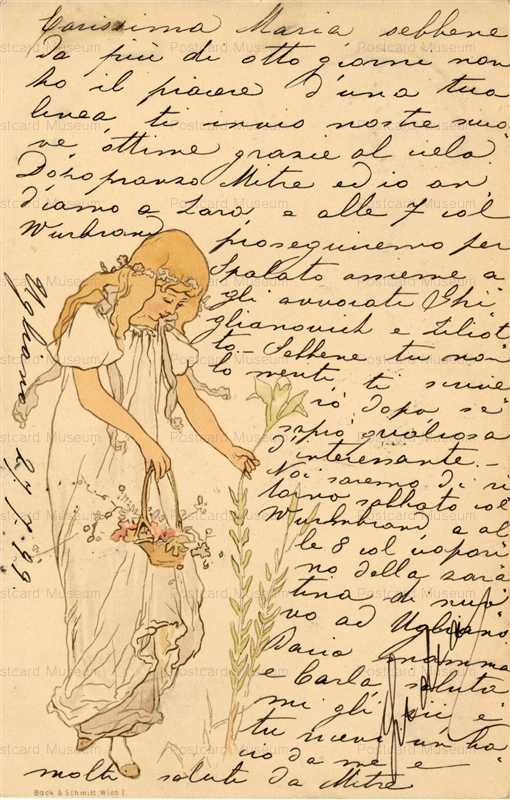 Carissima Maria sebbene
da più di otto giorni non
ho il piacere d'una tua
linea, ti invio nostre nuo
ve, ottime grazie al cielo.
Dopo pranzo Mitre ed io an
diamo a Zara, e alle 7 col
Wurmbrand
proseguiremo per
Spalato assieme a
gli avvocati Ghi
glianovich e Ziliot
to. Sebbene tu non
lo meriti, ti scrive
rò dopo se
saprò qualcosa
d'interessante. -
Noi saremo di ri
torno sabbato col
Wurmbrand, e al
le 8 col vapori
no della zara
tina di nuo
vo ad Ugliano
Daria mamma
e Carla saluta
mi gli zii e
tu ricevi un ba
cio da me e
molti saluti da Mitre
Ugliano
Back & Schmitt, Wien I.
Postcard Museum